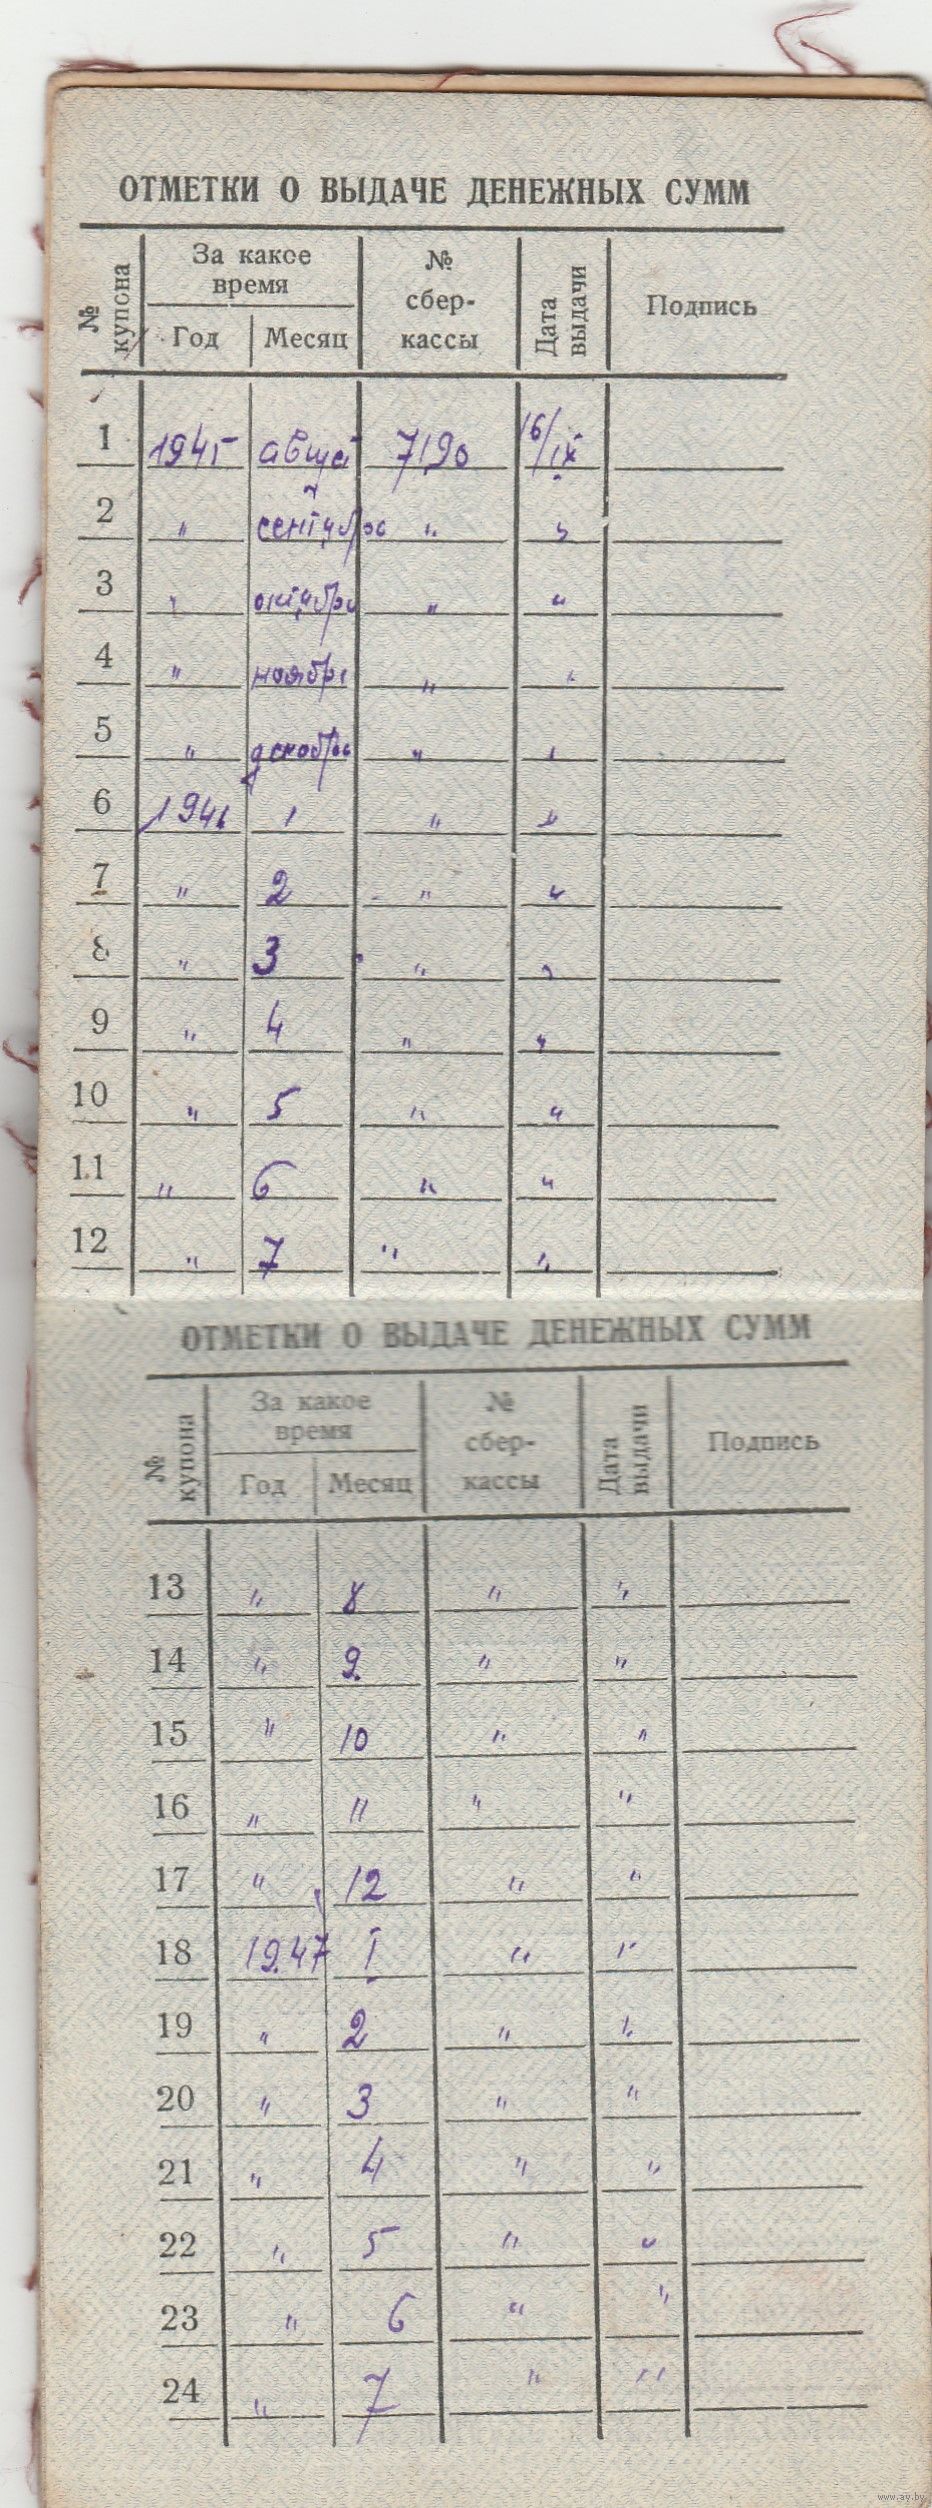 ОТМЕТКИ О ВЫДАЧЕ ДЕНЕЖНЫХ СУММ
№ купона
За какое время
Год
Месяц
№ сбер-
кассы
Дата выдачи
Подпись
1 1945 август 7190 16/IX
2 " сентябрь " "
3 " октябрь " "
4 " ноябрь " "
5 " декабрь " "
6 1946 1 " "
7 " 2 " "
8 " 3 " "
9 " 4 " "
10 " 5 " "
11 " 6 " "
12 " 7 " "
ОТМЕТКИ О ВЫДАЧЕ ДЕНЕЖНЫХ СУММ
№ купона
За какое время
Год
Месяц
№ сбер-
кассы
Дата выдачи
Подпись
13 " 8 " "
14 " 9 " "
15 " 10 " "
16 " 11 " "
17 " 12 " "
18 1947 I " "
19 " 2 " "
20 " 3 " "
21 " 4 " "
22 " 5 " "
23 " 6 " "
24 " 7 " "
www.ay.by